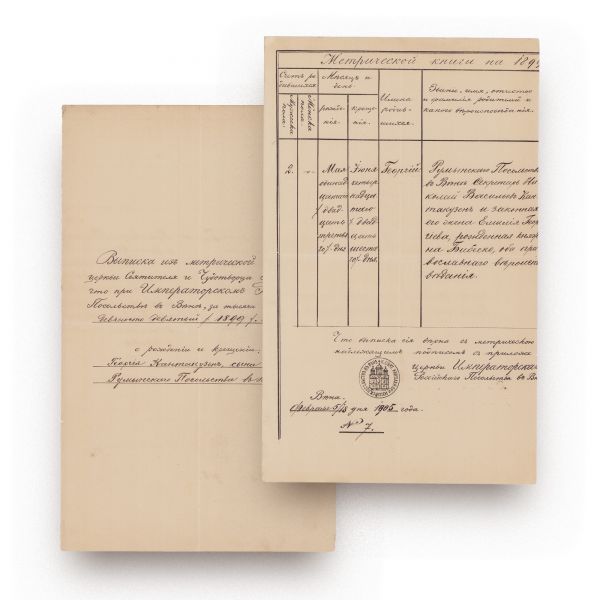 Выписка изъ метрической
церкви Святителя и Чудотворца
что при Императорскомъ
Посольствѣ въ Вѣнѣ, за тысяча
девяносто девятый / 1899 г.
о рожденіи и крещеніи
Георгія Кантакузенъ, сына
Румынскаго Посольства въ
Метрической книги на 1899
Счетъ ро-
дившихся
Мѣсяцъ и
день
Имена
родив-
шихся
Званіе, имя, отчество
и фамилія родителей и
какого вѣроисповѣданія.
Мужеска
пола.
Женска
пола.
рожде-
нія.
креще-
нія.
2. Мая Іюня Георгій Румынскаго Посольства
въ Вѣнѣ Секретарь Ни-
колай Васильевъ Кан-
такузенъ и законная
его жена Емилія Геор-
гіева, рожденная княж-
на Бибеско, оба пра-
вославнаго вѣроиспо-
вѣданія.
Что выписка сія вѣрна съ метрическою
надлежащимъ подписомъ съ прилож
церкви Императорска
Россійскаго Посольства въ В
Вѣна.
Февраля 5/18 дня 1905 года.
№ 7.